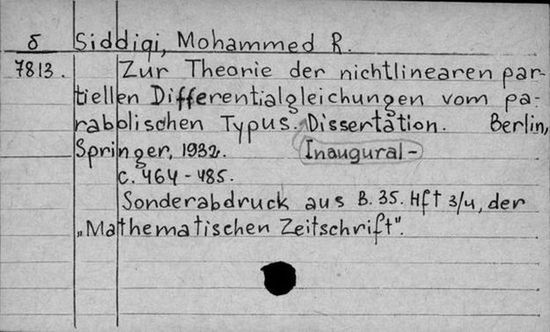 δ Siddiqi, Mohammed R.
7813. Zur Theorie der nichtlinearen par-
tiellen Differentialgleichungen vom pa-
rabolischen Typus. Dissertation. Berlin,
Springer, 1932. Inaugural-
c. 464-485.
Sonderabdruck aus B. 35. Hft 3/4, der
„Mathematischen Zeitschrift".